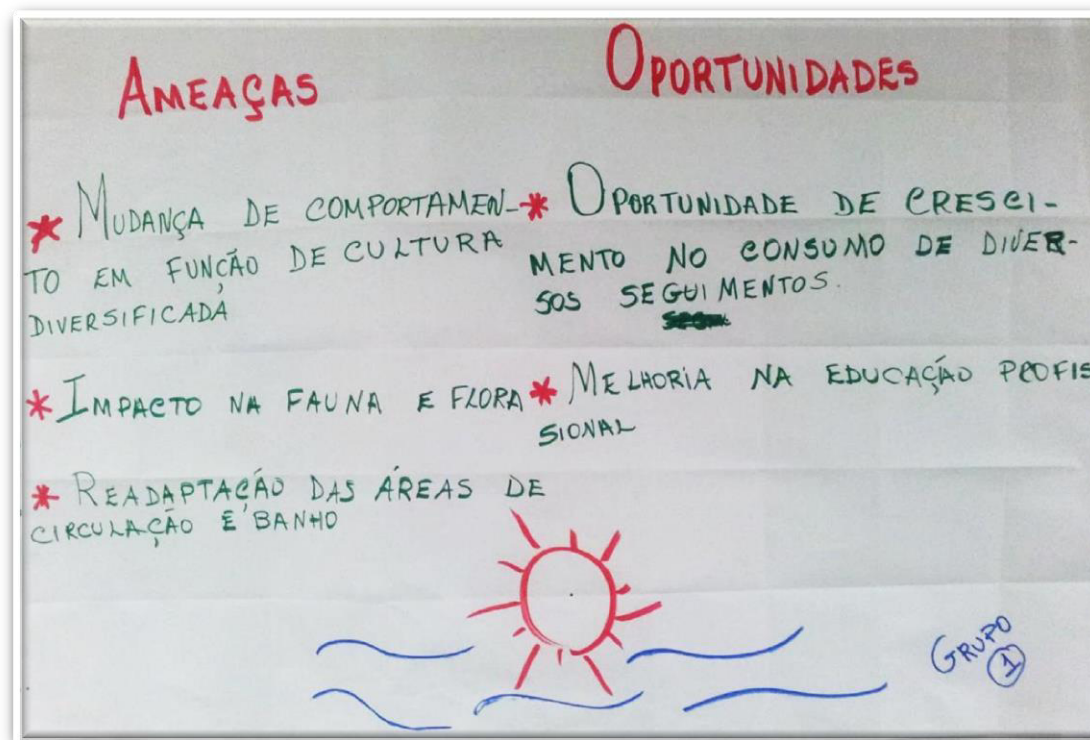 AMEAÇAS
* MUDANÇA DE COMPORTAMEN-
TO EM FUNÇÃO DE CULTURA
DIVERSIFICADA
* IMPACTO NA FAUNA E FLORA
* READAPTAÇÃO DAS ÁREAS DE
CIRCULAÇÃO E BANHO
OPORTUNIDADES
* OPORTUNIDADE DE CRESCI-
MENTO NO CONSUMO DE DIVER-
SOS SEGUIMENTOS.
* MELHORIA NA EDUCAÇÃO PROFIS
SIONAL
GRUPO
1